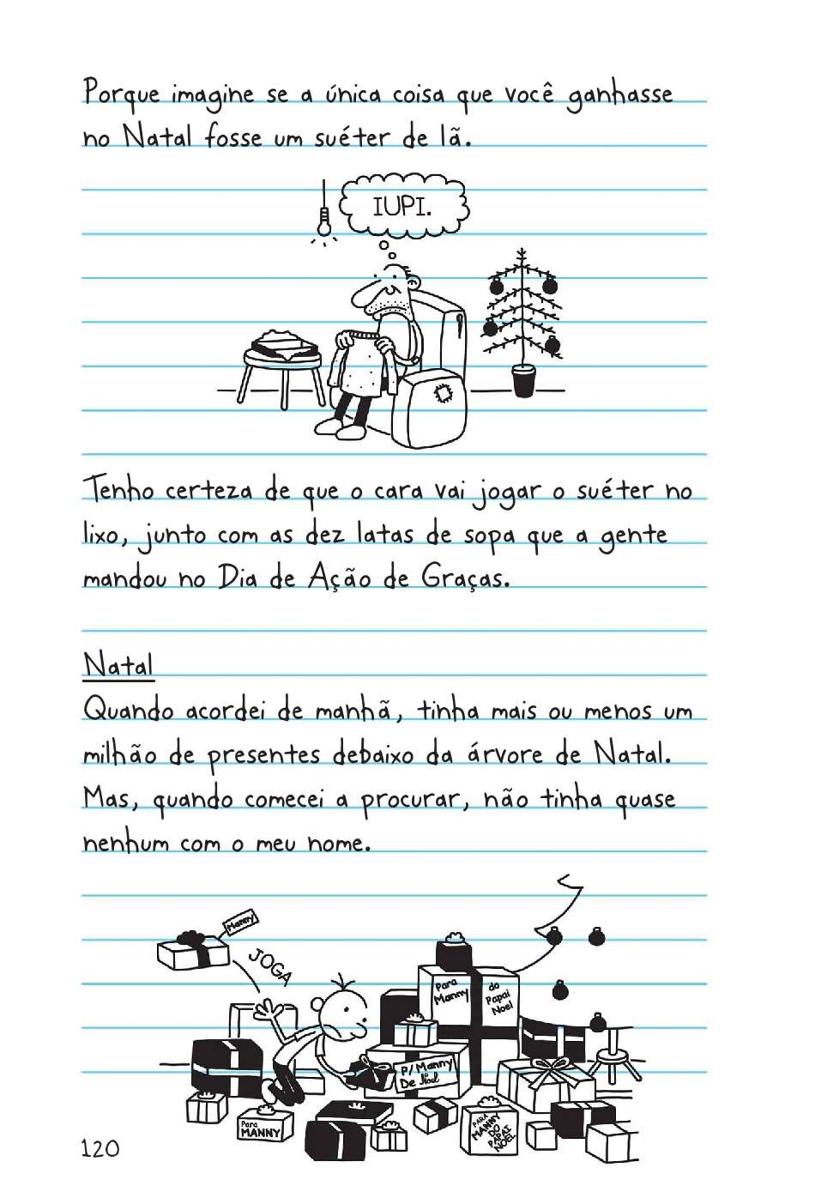 Porque imagine se a única coisa que você ganhasse
no Natal fosse um suéter de lã.
IUPI.
Tenho certeza de que o cara vai jogar o suéter no
lixo, junto com as dez latas de sopa que a gente
mandou no Dia de Ação de Graças.
Natal
Quando acordei de manhã, tinha mais ou menos um
milhão de presentes debaixo da árvore de Natal.
Mas, quando comecei a procurar, não tinha quase
nenhum com o meu nome.
Manny
JOGA
Para
Manny
do
Papai
Noel
P/ Manny
De Noel
Para
MANNY
PARA
MANNY
DO
PAPAI
NOEL
120